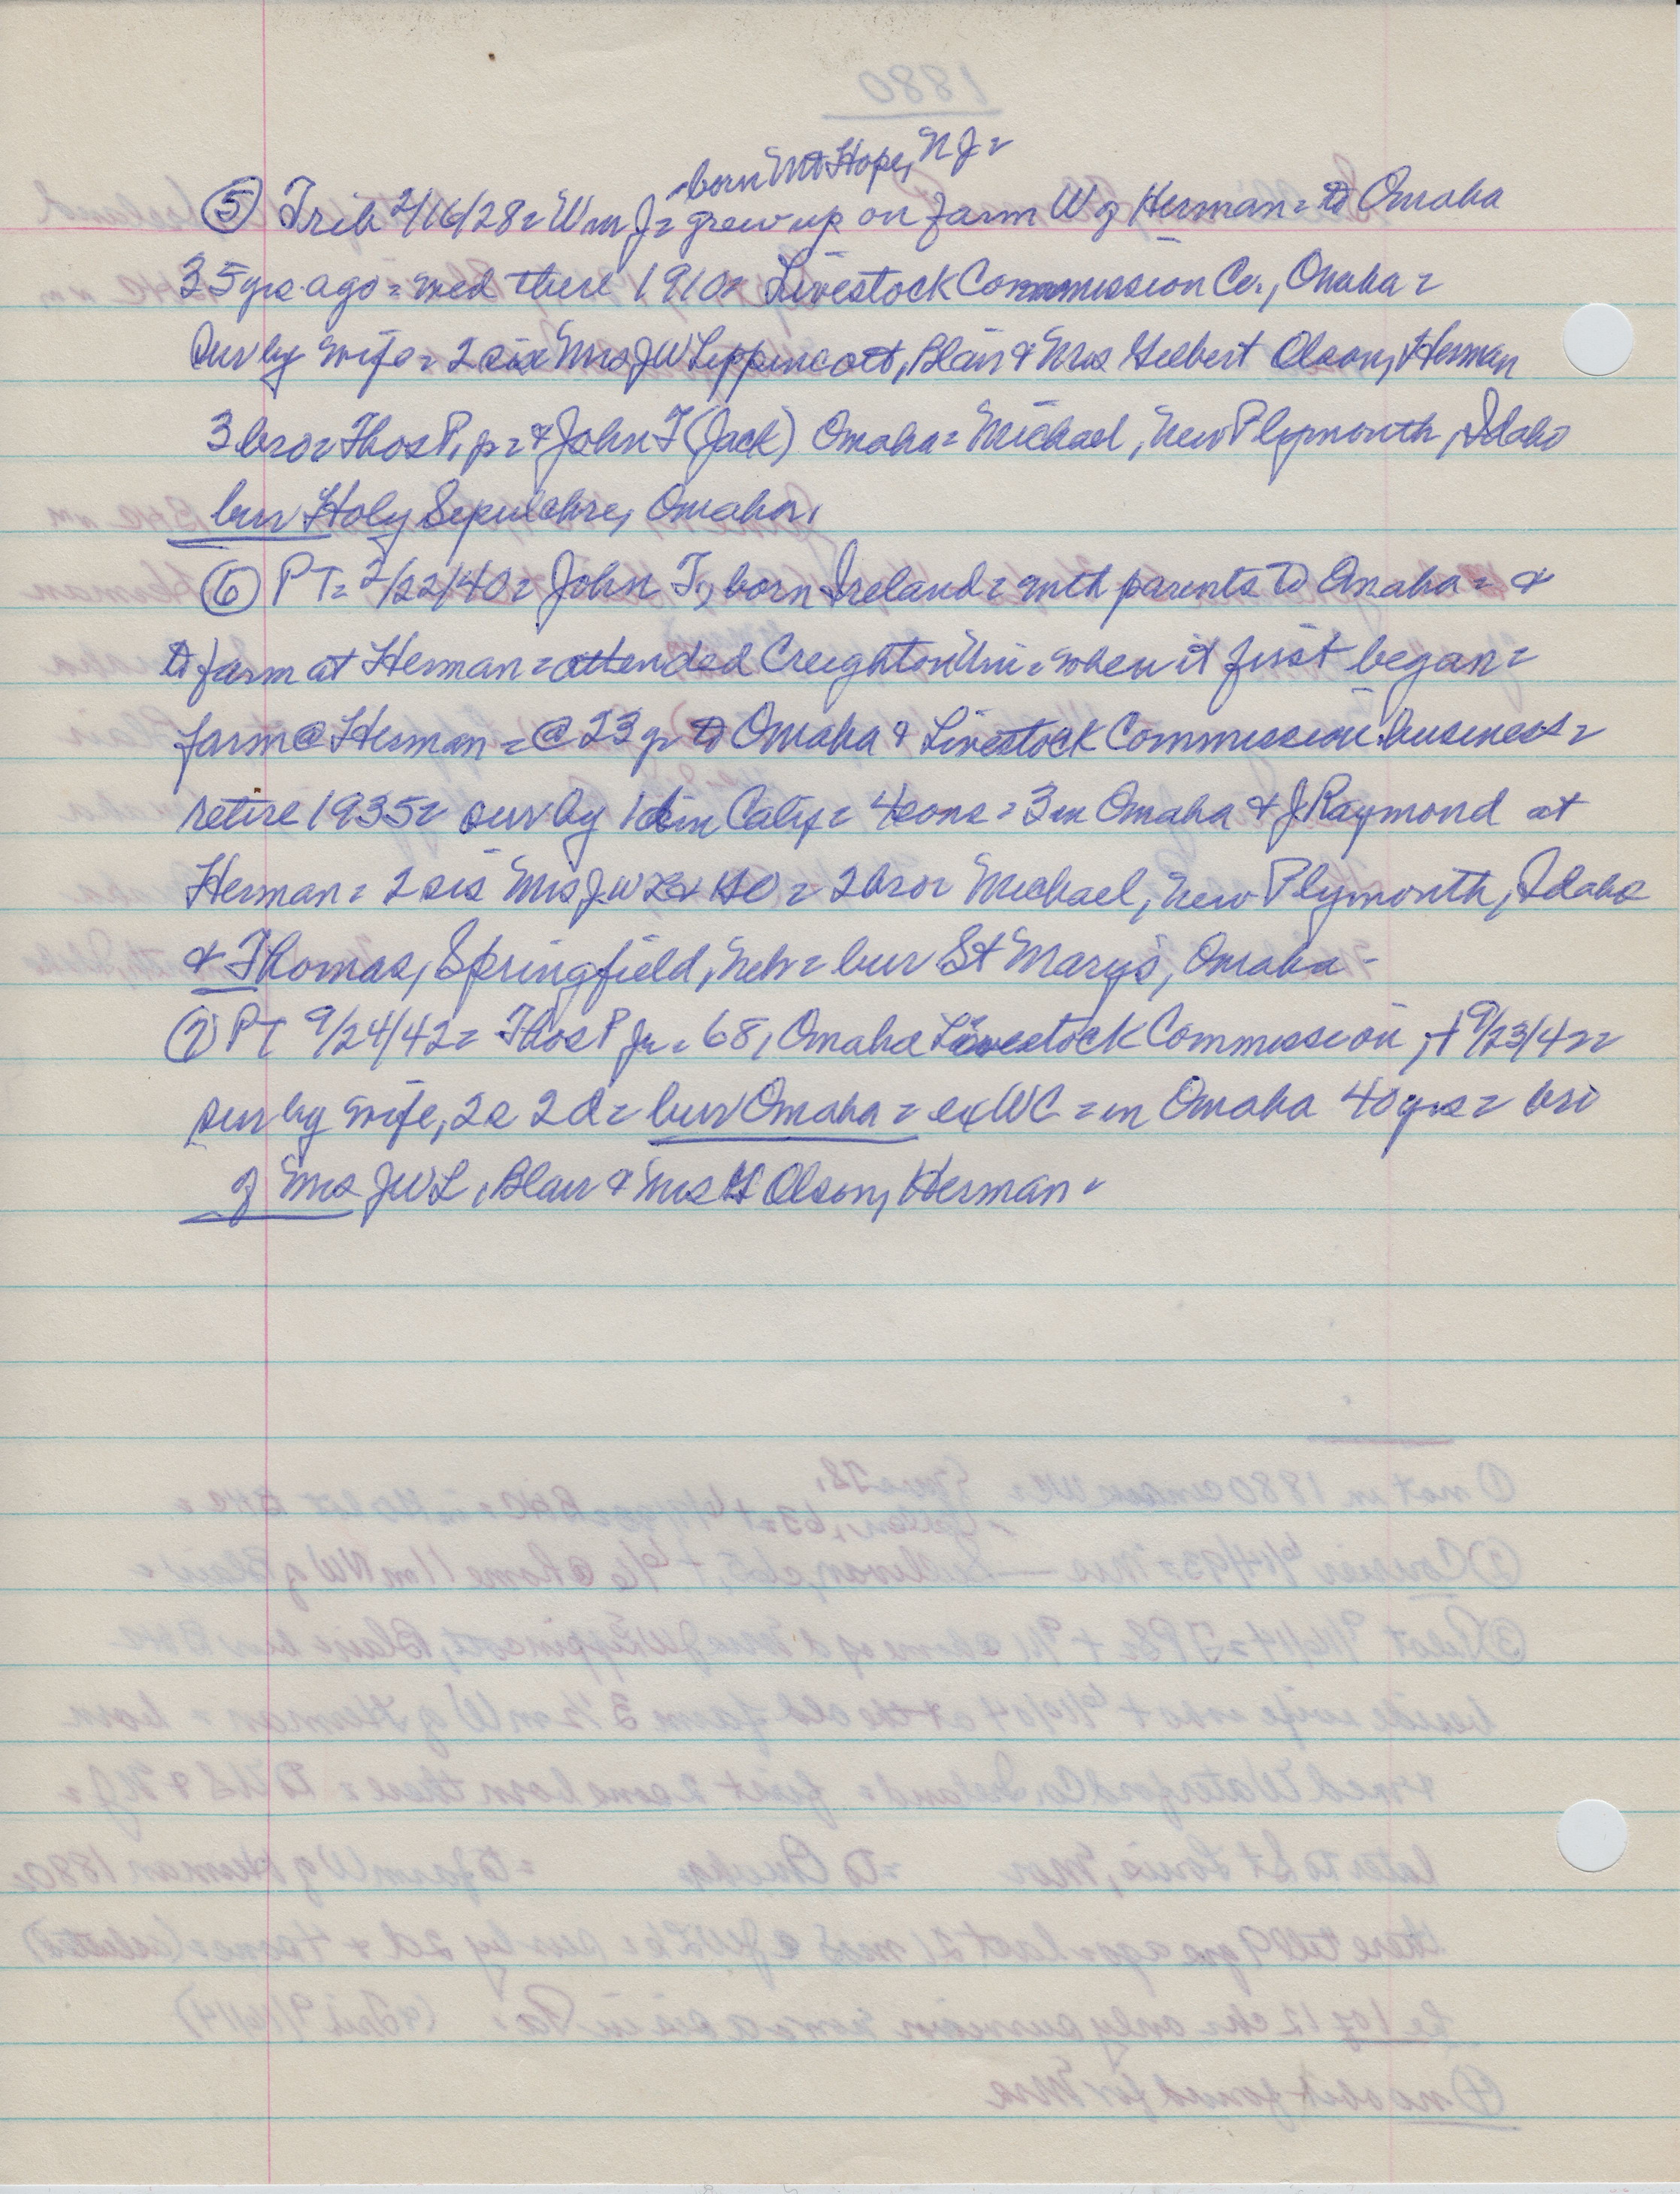 born Mt Hope, NJ =
⑤ Trib 2/16/28 = Wm J = grew up on farm W of Herman = to Omaha
35 yrs ago = wed there 1910 = Livestock Commission Co., Omaha =
sur by wife = 2 sis Mrs JW Lippincott, Blair & Mrs Gilbert Olson, Herman
3 bro = Thos P, Jr = & John T (Jack) Omaha = Michael, New Plymouth, Idaho
bur Holy Sepulchre, Omaha.
⑥ PT = 2/22/40 = John T, born Ireland = with parents to Omaha = &
to farm at Herman = attended Creighton Uni = when it first began =
farm @ Herman = @ 23 yr to Omaha & Livestock Commission business =
retire 1935 = sur by 1d in Calif = 4 sons = 3 in Omaha & J Raymond at
Herman = 2 sis Mrs JW L & GO = 2 bro = Michael, New Plymouth, Idaho
& Thomas, Springfield, Neb = bur St Marys, Omaha -
⑦ PT 9/24/42 = Thos P Jr = 68, Omaha Livestock Commission, + 9/23/42 =
sur by wife, 2s 2d = bur Omaha = ex WC = in Omaha 40 yrs = bro
of Mrs JWL, Blair & Mrs G Olson, Herman =